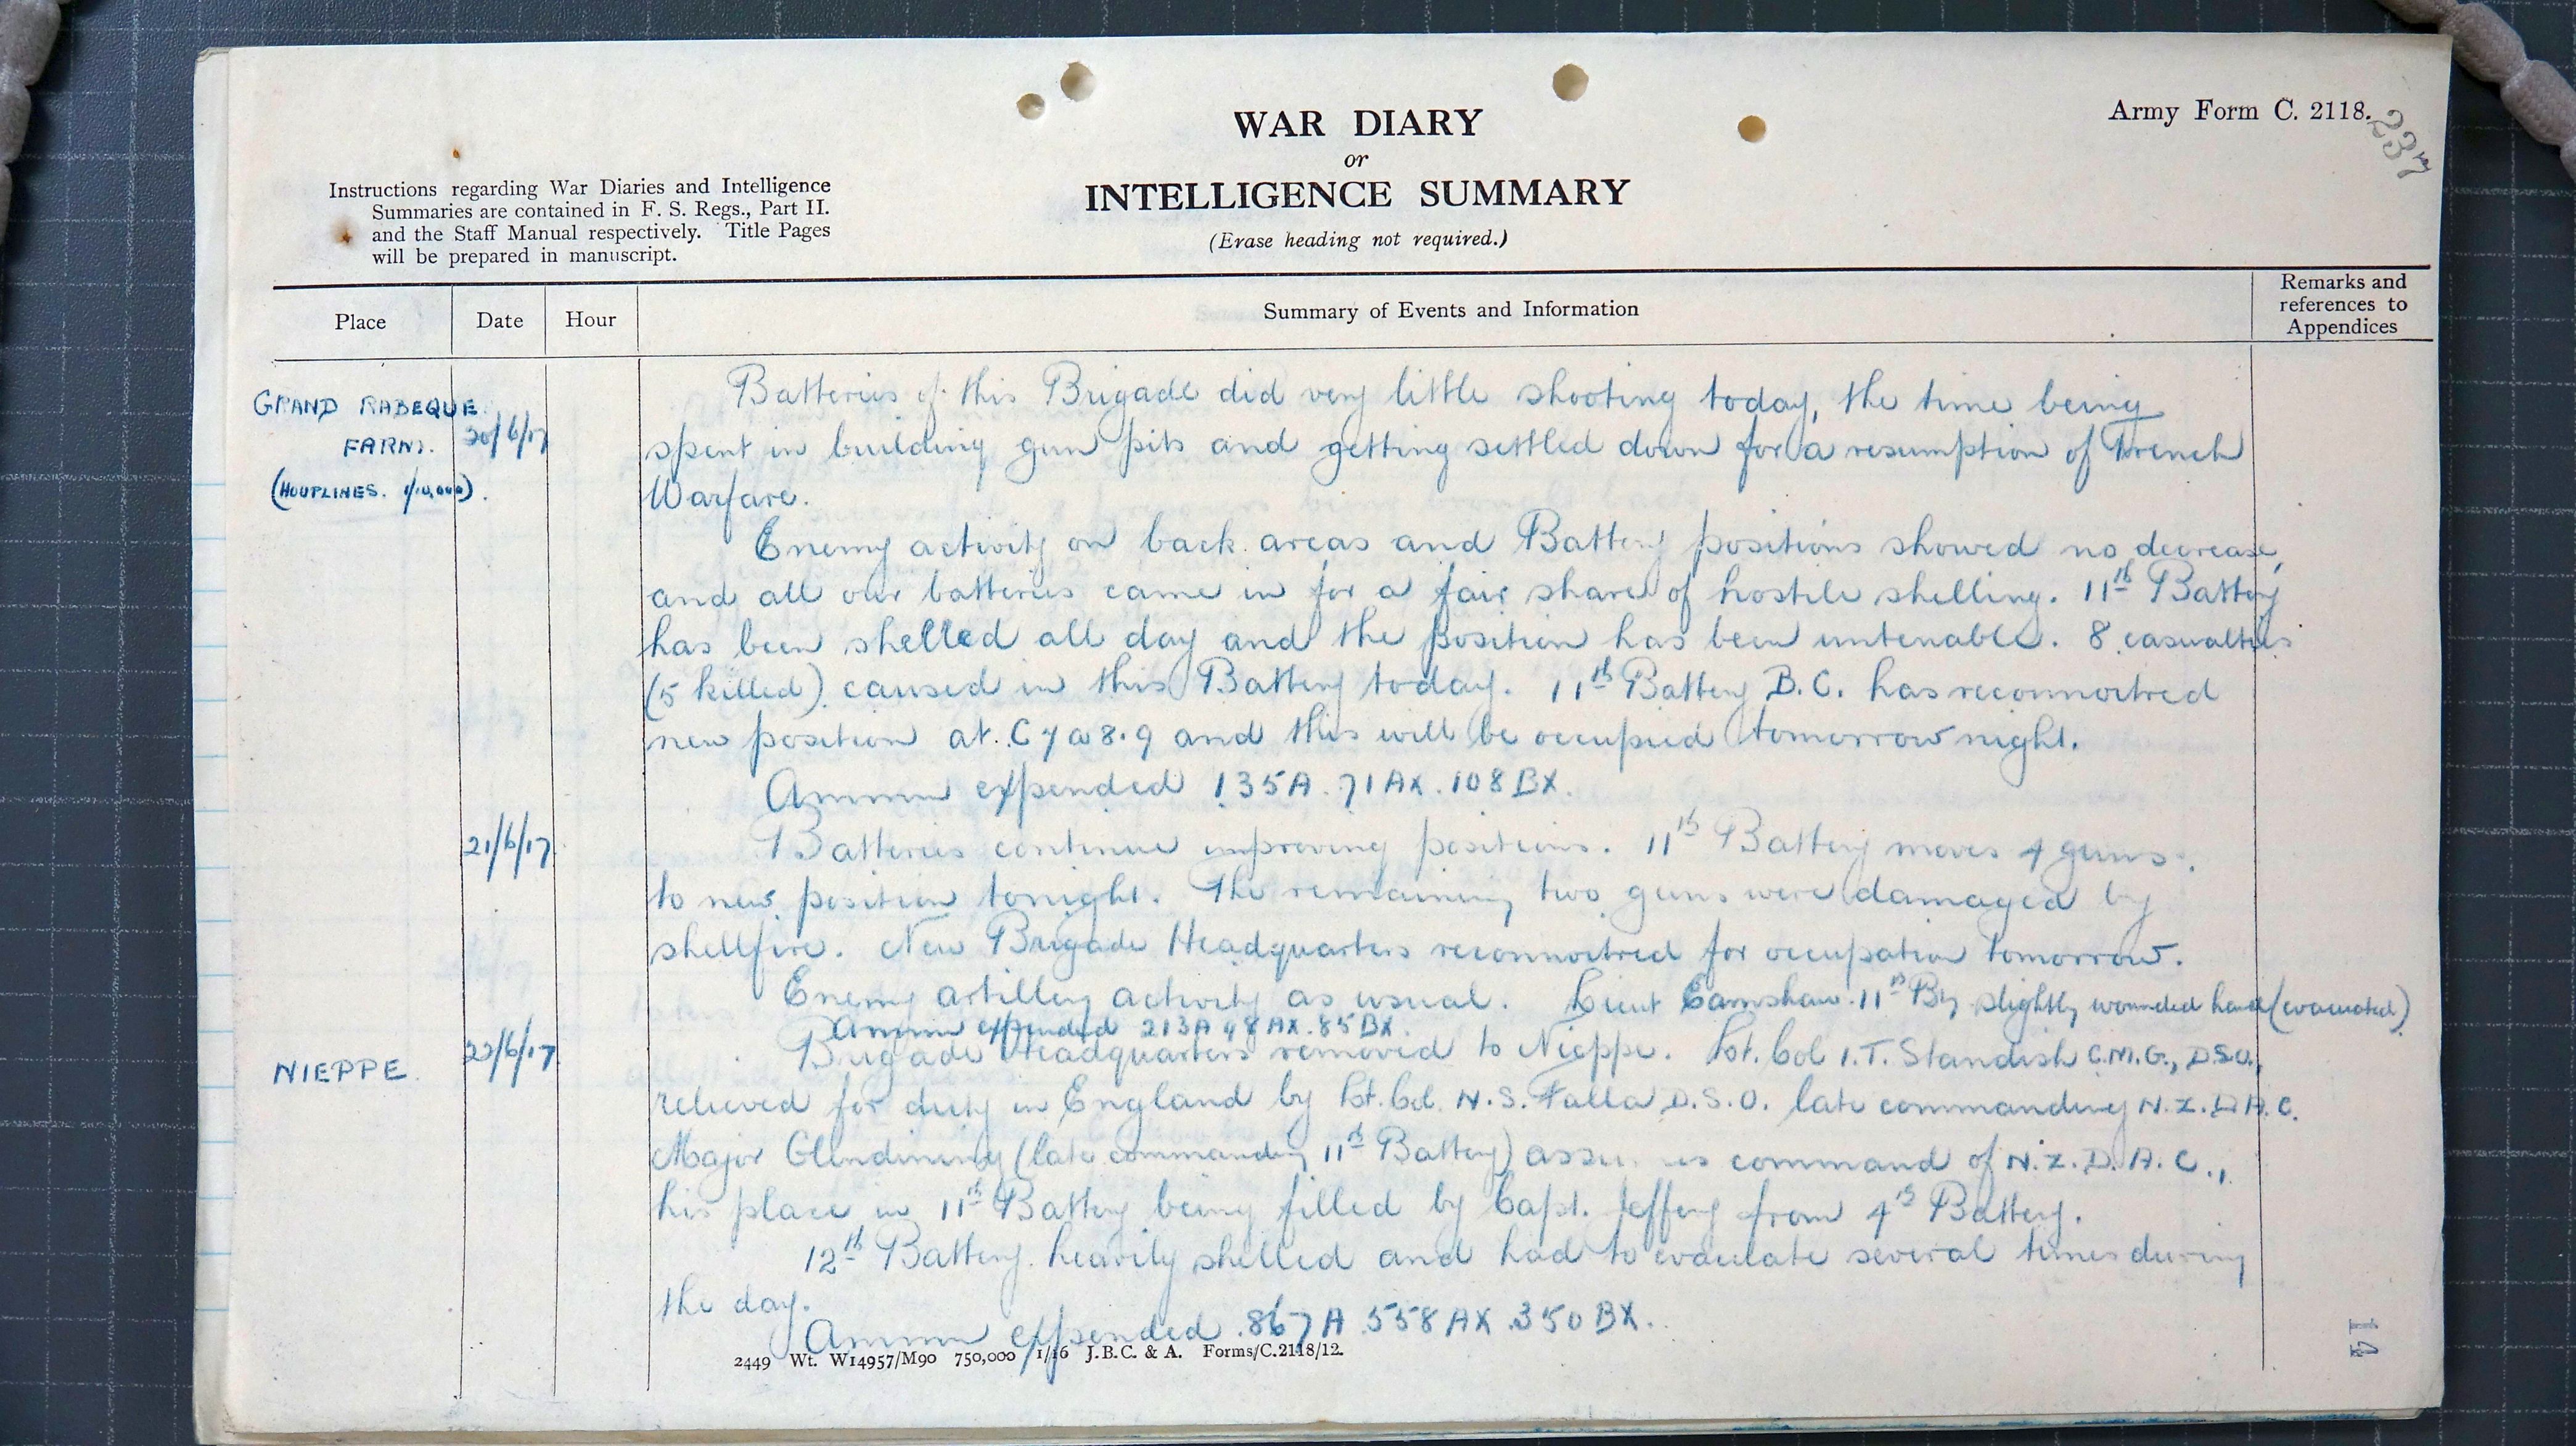 Army Form C. 2118.
237
WAR DIARY
or
INTELLIGENCE SUMMARY
(Erase heading not required.)
Instructions regarding War Diaries and Intelligence
Summaries are contained in F. S. Regs., Part II.
and the Staff Manual respectively. Title Pages
will be prepared in manuscript.
Place Date Hour Summary of Events and Information Remarks and
references to
Appendices
GRAND RABEQUE
FARM. 20/6/17
(HOUPLINES. 1/10,000).
Batteries of this Brigade did very little shooting today, the time being
spent in building gun pits and getting settled down for a resumption of Trench
Warfare.
Enemy activity on back areas and Battery positions showed no decrease,
and all our batteries came in for a fair share of hostile shelling. 11th Battery
has been shelled all day and the position has been untenable. 8 casualties
(5 killed) caused in this Battery today. 11th Battery B.C. has reconnoitred
new position at C 7 a 8.9 and this will be occupied tomorrow night.
Ammn expended 135A. 71AX. 108BX.
21/6/17 Batteries continue improving positions. 11th Battery moves 4 guns.
to new position tonight. The remaining two guns were damaged by
shellfire. New Brigade Headquarters reconnoitred for occupation tomorrow.
Enemy artillery activity as usual. Lieut Earnshaw. 11th Bty slightly wounded hand (evacuated)
Ammn expended 213A 48AX. 85BX.
NIEPPE. 22/6/17 Brigade Headquarters removed to Nieppe. Lt. Col I.T. Standish C.M.G., D.S.O.,
relieved for duty in England by Lt. Col. N.S. Falla D.S.O. late commanding N.Z.D.A.C.
Major Glendining (late commanding 11th Battery) assumes command of N.Z.D.A.C.,
his place in 11th Battery being filled by Capt. Jeffery from 4th Battery.
12th Battery heavily shelled and had to evacuate several times during
the day.
Ammn expended 867A 558AX 350BX.
2449 Wt. W14957/M90 750,000 1/16 J.B.C. & A. Forms/C.2118/12.
14